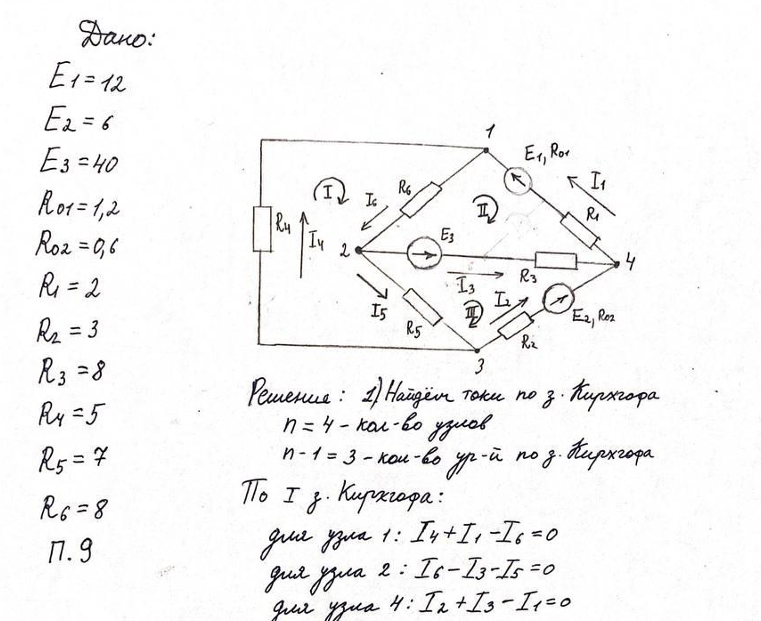 Дано:
E1=12
E2=6
E3=40
R01=1,2
R02=0,6
R1=2
R2=3
R3=8
R4=5
R5=7
R6=8
п.9
1
E1, R01
I1
R6
I
I6
II
R1
R4
I4
2
E3
4
I3
R3
I5
III
I2
E2, R02
R5
R2
3
Решение: 1) Найдём токи по з. Кирхгофа
n=4-кол-во узлов
n-1=3-кол-во ур-й по з. Кирхгофа
По I з. Кирхгофа:
для узла 1: I4+I1-I6=0
для узла 2: I6-I3-I5=0
для узла 4: I2+I3-I1=0